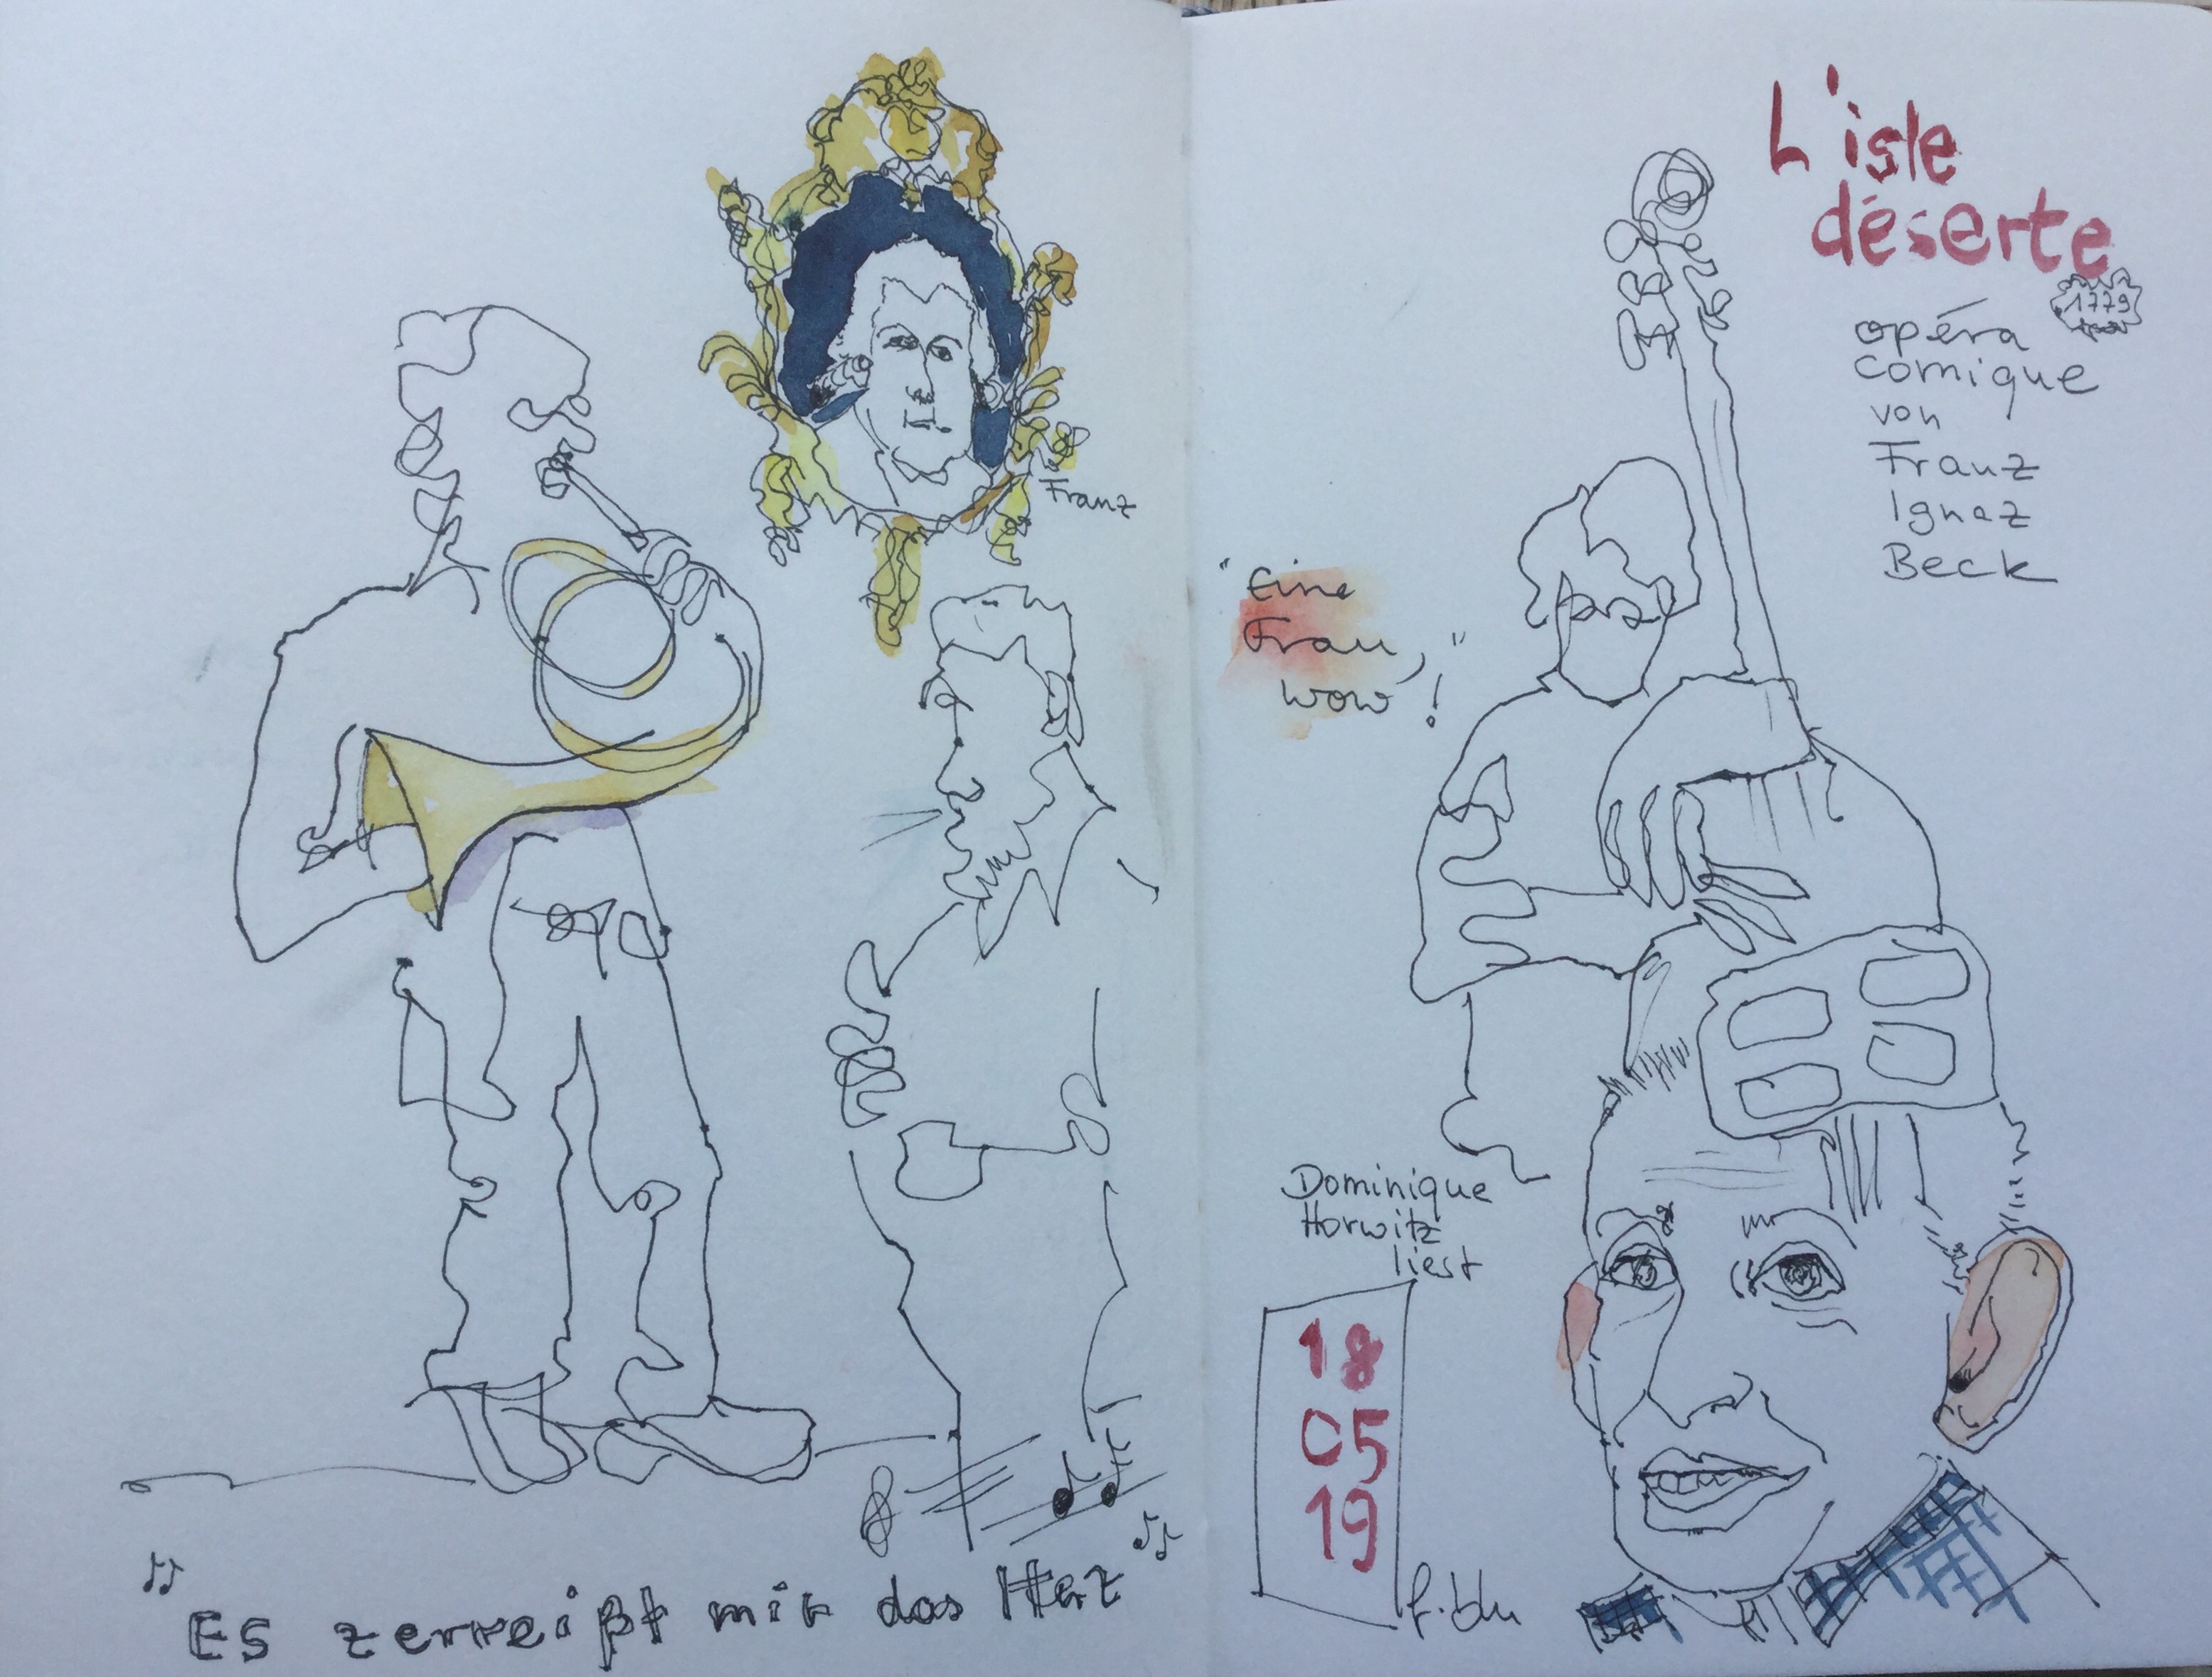 Franz
"Es zerreißt mir das Herz"
L'isle
déserte
1779
opéra
comique
von
Franz
Ignaz
Beck
"Eine
Frau,"
wow!
Dominique
Horwitz
liest
18
05
19